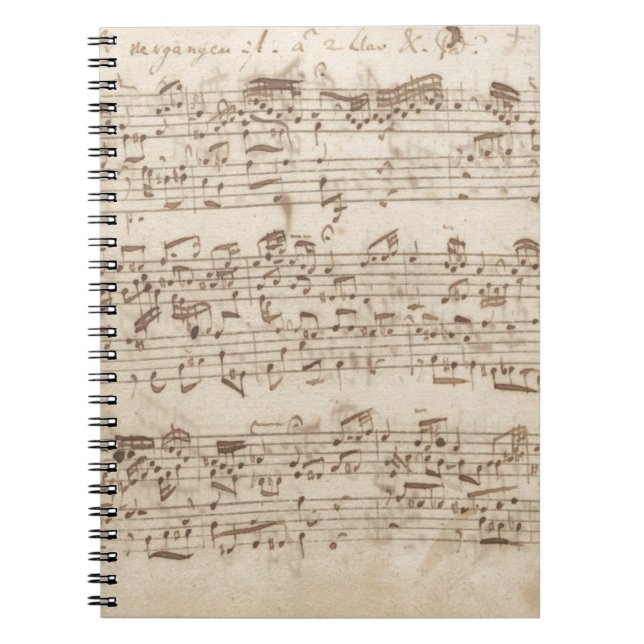 vergangen ist. à 2 Clav & Ped.